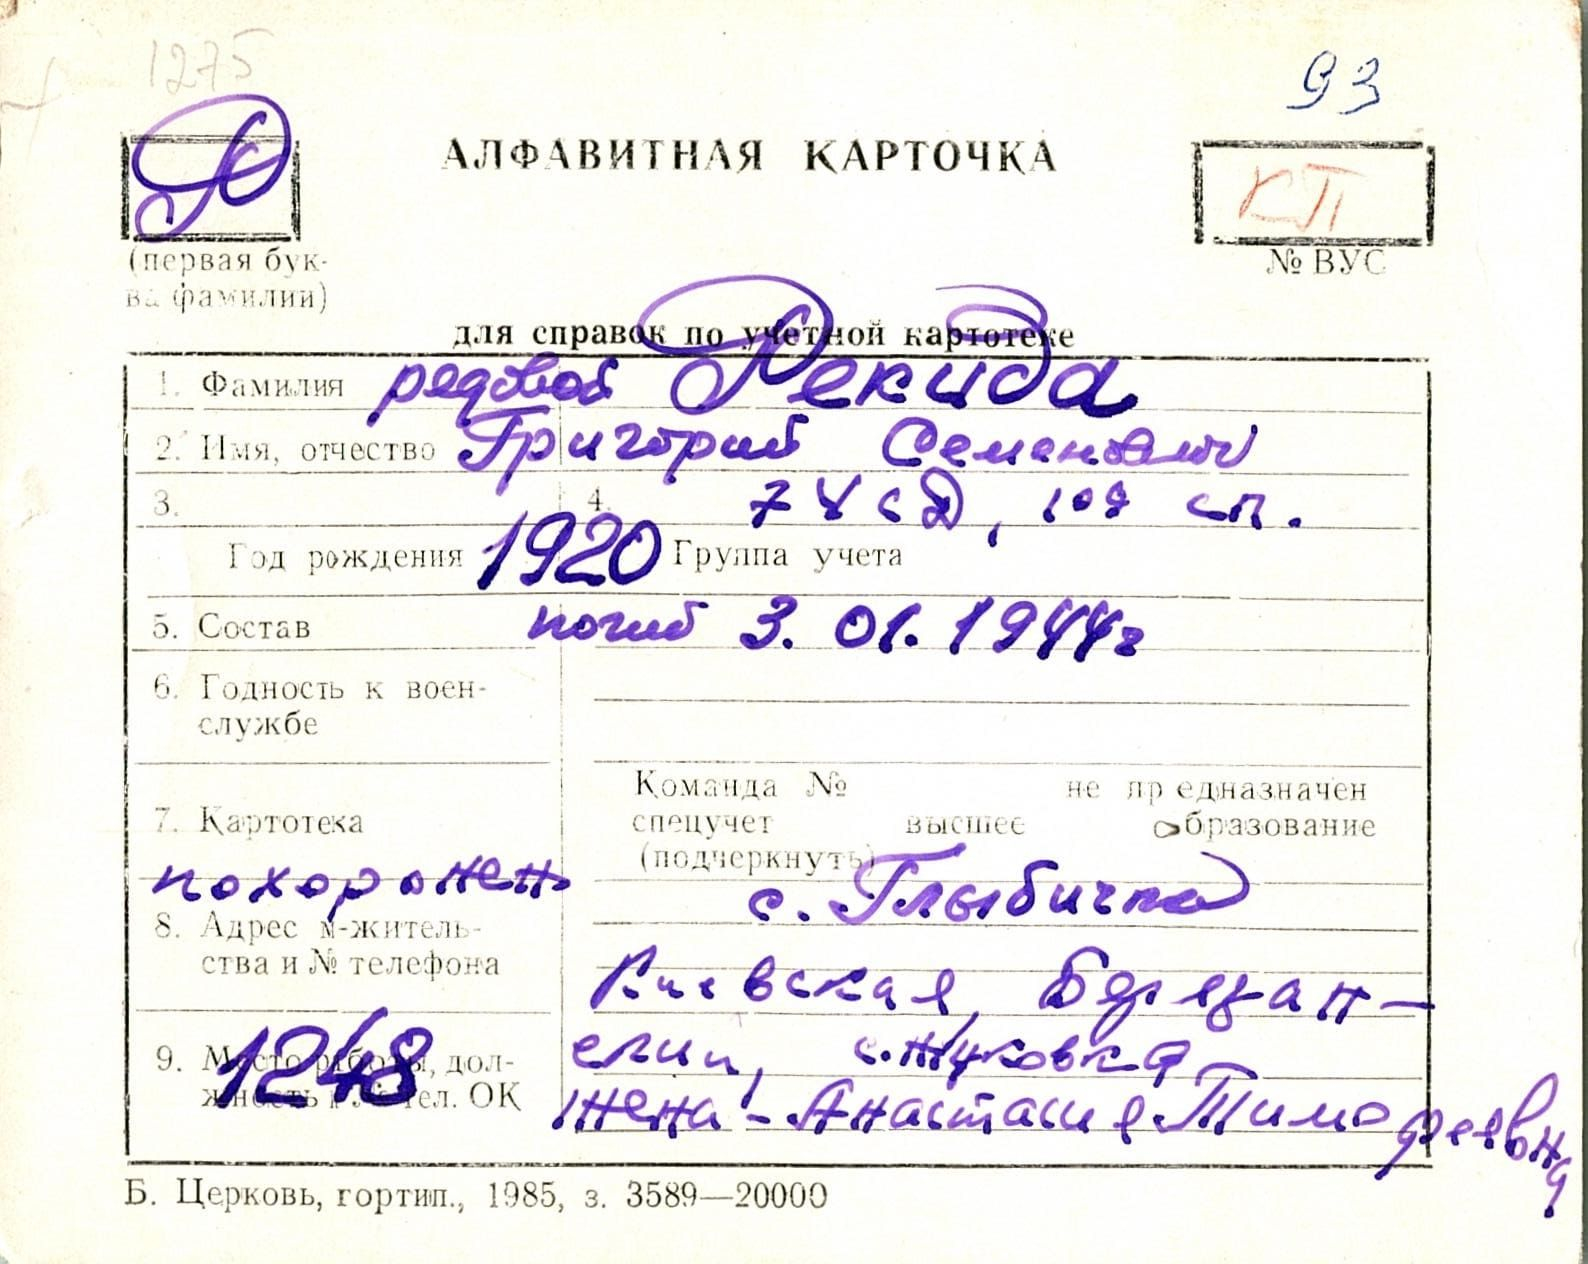 1275
93
Р
АЛФАВИТНАЯ КАРТОЧКА
КП
(первая бук-
ва фамилии)
№ ВУС
для справок по учетной картотеке
1. Фамилия рядовой Рекида
2. Имя, отчество Григорий Семенович
3. 4. 74 сД, 109 сп.
Год рождения 1920 Группа учета
5. Состав погиб 3.01.1944г
6. Годность к воен-
службе
Команда № не предназначен
7. Картотека спецучет высшее образование
(подчеркнуть)
похоронен с. Глыбичка
8. Адрес м-житель-
ства и № телефона
Киевская, Березан-
9. Место работы, дол-
жность и № тел. ОК
1248
ский, с. Жуковка
жена - Анастасия Тимофеевна
Б. Церковь, гортип., 1985, з. 3589—20000